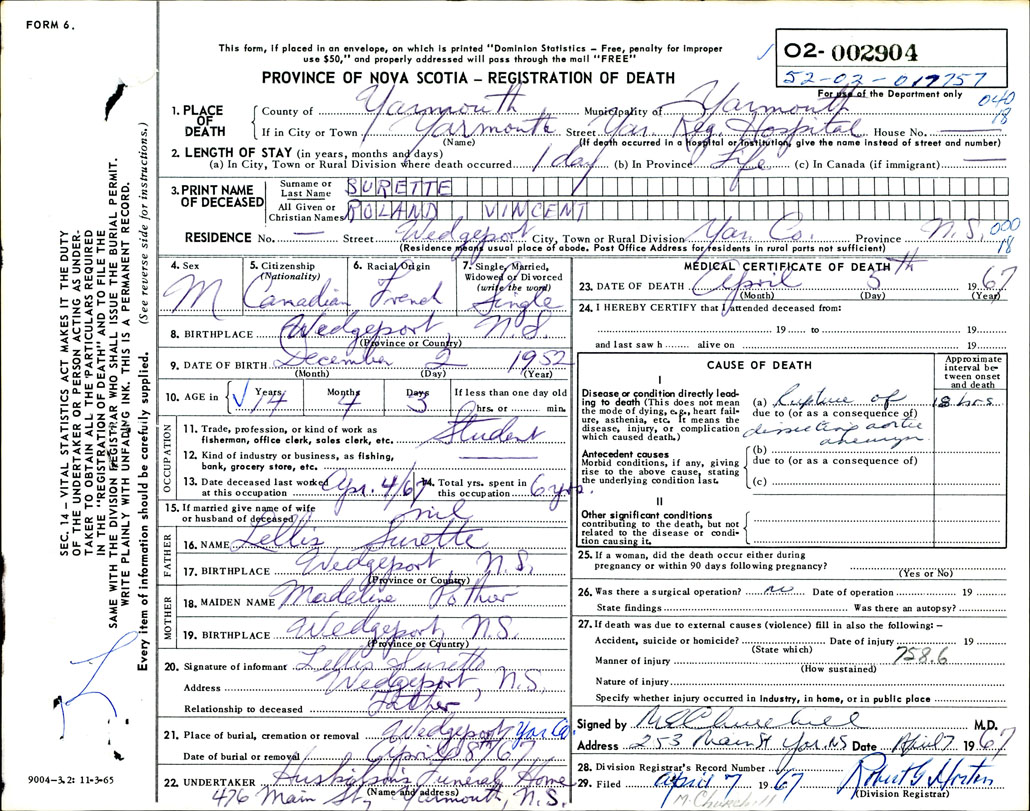 FORM 6.
This form, if placed in an envelope, on which is printed "Dominion Statistics – Free, penalty for improper
use $50," and properly addressed will pass through the mail "FREE"
PROVINCE OF NOVA SCOTIA – REGISTRATION OF DEATH
02-002904
52-02-017757
For use of the Department only
040
18
1. PLACE OF DEATH
County of Yarmouth Municipality of Yarmouth
If in City or Town Yarmouth Street Yar. Reg. Hospital House No.
(Name) (If death occurred in a hospital or institution, give the name instead of street and number)
2. LENGTH OF STAY (in years, months and days)
(a) In City, Town or Rural Division where death occurred 1 day (b) In Province Life (c) In Canada (if immigrant)
3. PRINT NAME OF DECEASED
Surname or Last Name SURETTE
All Given or Christian Names ROLAND VINCENT
RESIDENCE No. Street Wedgeport City, Town or Rural Division Yar. Co. Province N.S.
000
18
(Residence means usual place of abode. Post Office Address for residents in rural parts not sufficient)
4. Sex M
5. Citizenship (Nationality) Canadian
6. Racial Origin French
7. Single, Married, Widowed or Divorced (write the word) Single
8. BIRTHPLACE Wedgeport, N.S.
(Province or Country)
9. DATE OF BIRTH December 2 1952
(Month) (Day) (Year)
10. AGE in Years 14 Months 4 Days 3 If less than one day old hrs. or min.
OCCUPATION
11. Trade, profession, or kind of work as fisherman, office clerk, sales clerk, etc. Student
12. Kind of industry or business, as fishing, bank, grocery store, etc.
13. Date deceased last worked at this occupation Apr. 4/67
14. Total yrs. spent in this occupation 6 yrs.
15. If married give name of wife or husband of deceased nil
FATHER
16. NAME Lellis Surette
17. BIRTHPLACE Wedgeport, N.S.
(Province or Country)
MOTHER
18. MAIDEN NAME Madeline Pothier
19. BIRTHPLACE Wedgeport, N.S.
(Province or Country)
20. Signature of informant Lellis Surette
Address Wedgeport, N.S.
Relationship to deceased Father
21. Place of burial, cremation or removal Wedgeport Yar Co.
Date of burial or removal April 8th/67
22. UNDERTAKER Huskilson's Funeral Home
(Name and address)
476 Main St., Yarmouth, N.S.
MEDICAL CERTIFICATE OF DEATH
23. DATE OF DEATH April 5th 1967
(Month) (Day) (Year)
24. I HEREBY CERTIFY that I attended deceased from:
19 to 19
and last saw h alive on 19
CAUSE OF DEATH
Approximate interval between onset and death
I
Disease or condition directly leading to death (This does not mean the mode of dying, e.g., heart failure, asthenia, etc. It means the disease, injury, or complication which caused death.)
(a) Rupture of 18 hrs.
due to (or as a consequence of)
dissecting aortic
aneurysm
Antecedent causes
Morbid conditions, if any, giving rise to the above cause, stating the underlying condition last.
(b)
due to (or as a consequence of)
(c)
II
Other significant conditions
contributing to the death, but not related to the disease or condition causing it.
25. If a woman, did the death occur either during pregnancy or within 90 days following pregnancy?
(Yes or No)
26. Was there a surgical operation? no Date of operation 19
State findings Was there an autopsy?
27. If death was due to external causes (violence) fill in also the following: –
Accident, suicide or homicide? Date of injury 19
(State which)
758.6
Manner of injury
(How sustained)
Nature of injury
Specify whether injury occurred in Industry, in home, or in public place
Signed by M E Churchill M.D.
Address 253 Main St Yar. NS Date April 7 1967
28. Division Registrar's Record Number
29. Filed April 7 1967 Robert G Morton
(Division Registrar)
M. Churchill
SEC. 14 – VITAL STATISTICS ACT MAKES IT THE DUTY
OF THE UNDERTAKER OR PERSON ACTING AS UNDER-
TAKER TO OBTAIN ALL THE PARTICULARS REQUIRED
IN THE "REGISTRATION OF DEATH" AND TO FILE THE
SAME WITH THE DIVISION REGISTRAR WHO SHALL ISSUE THE BURIAL PERMIT.
WRITE PLAINLY WITH UNFADING INK. THIS IS A PERMANENT RECORD.
Every item of information should be carefully supplied. (See reverse side for instructions.)
9004-3.2: 11-3-65